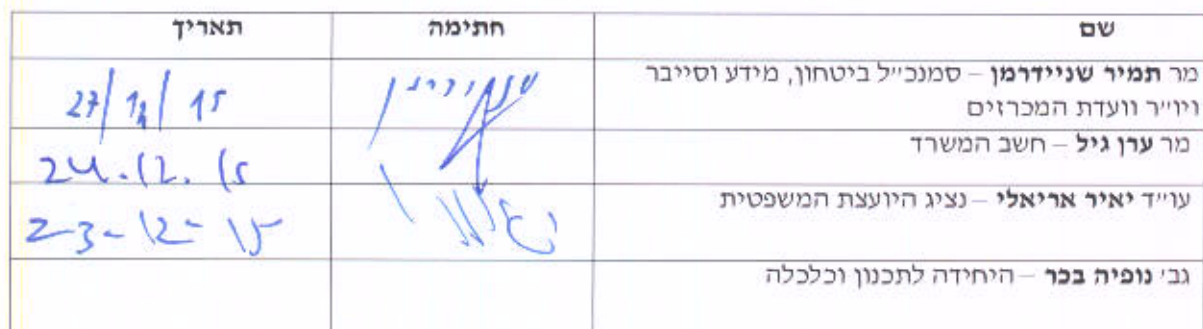 שם חתימה תאריך
מר תמיר שניידרמן – סמנכ״ל ביטחון, מידע וסייבר 27/12/15
ויו״ר וועדת המכרזים
מר ערן גיל – חשב המשרד 24.12.15
עו״ד יאיר אריאלי – נציג היועצת המשפטית 23-12-15
גב׳ נופיה בכר – היחידה לתכנון וכלכלה